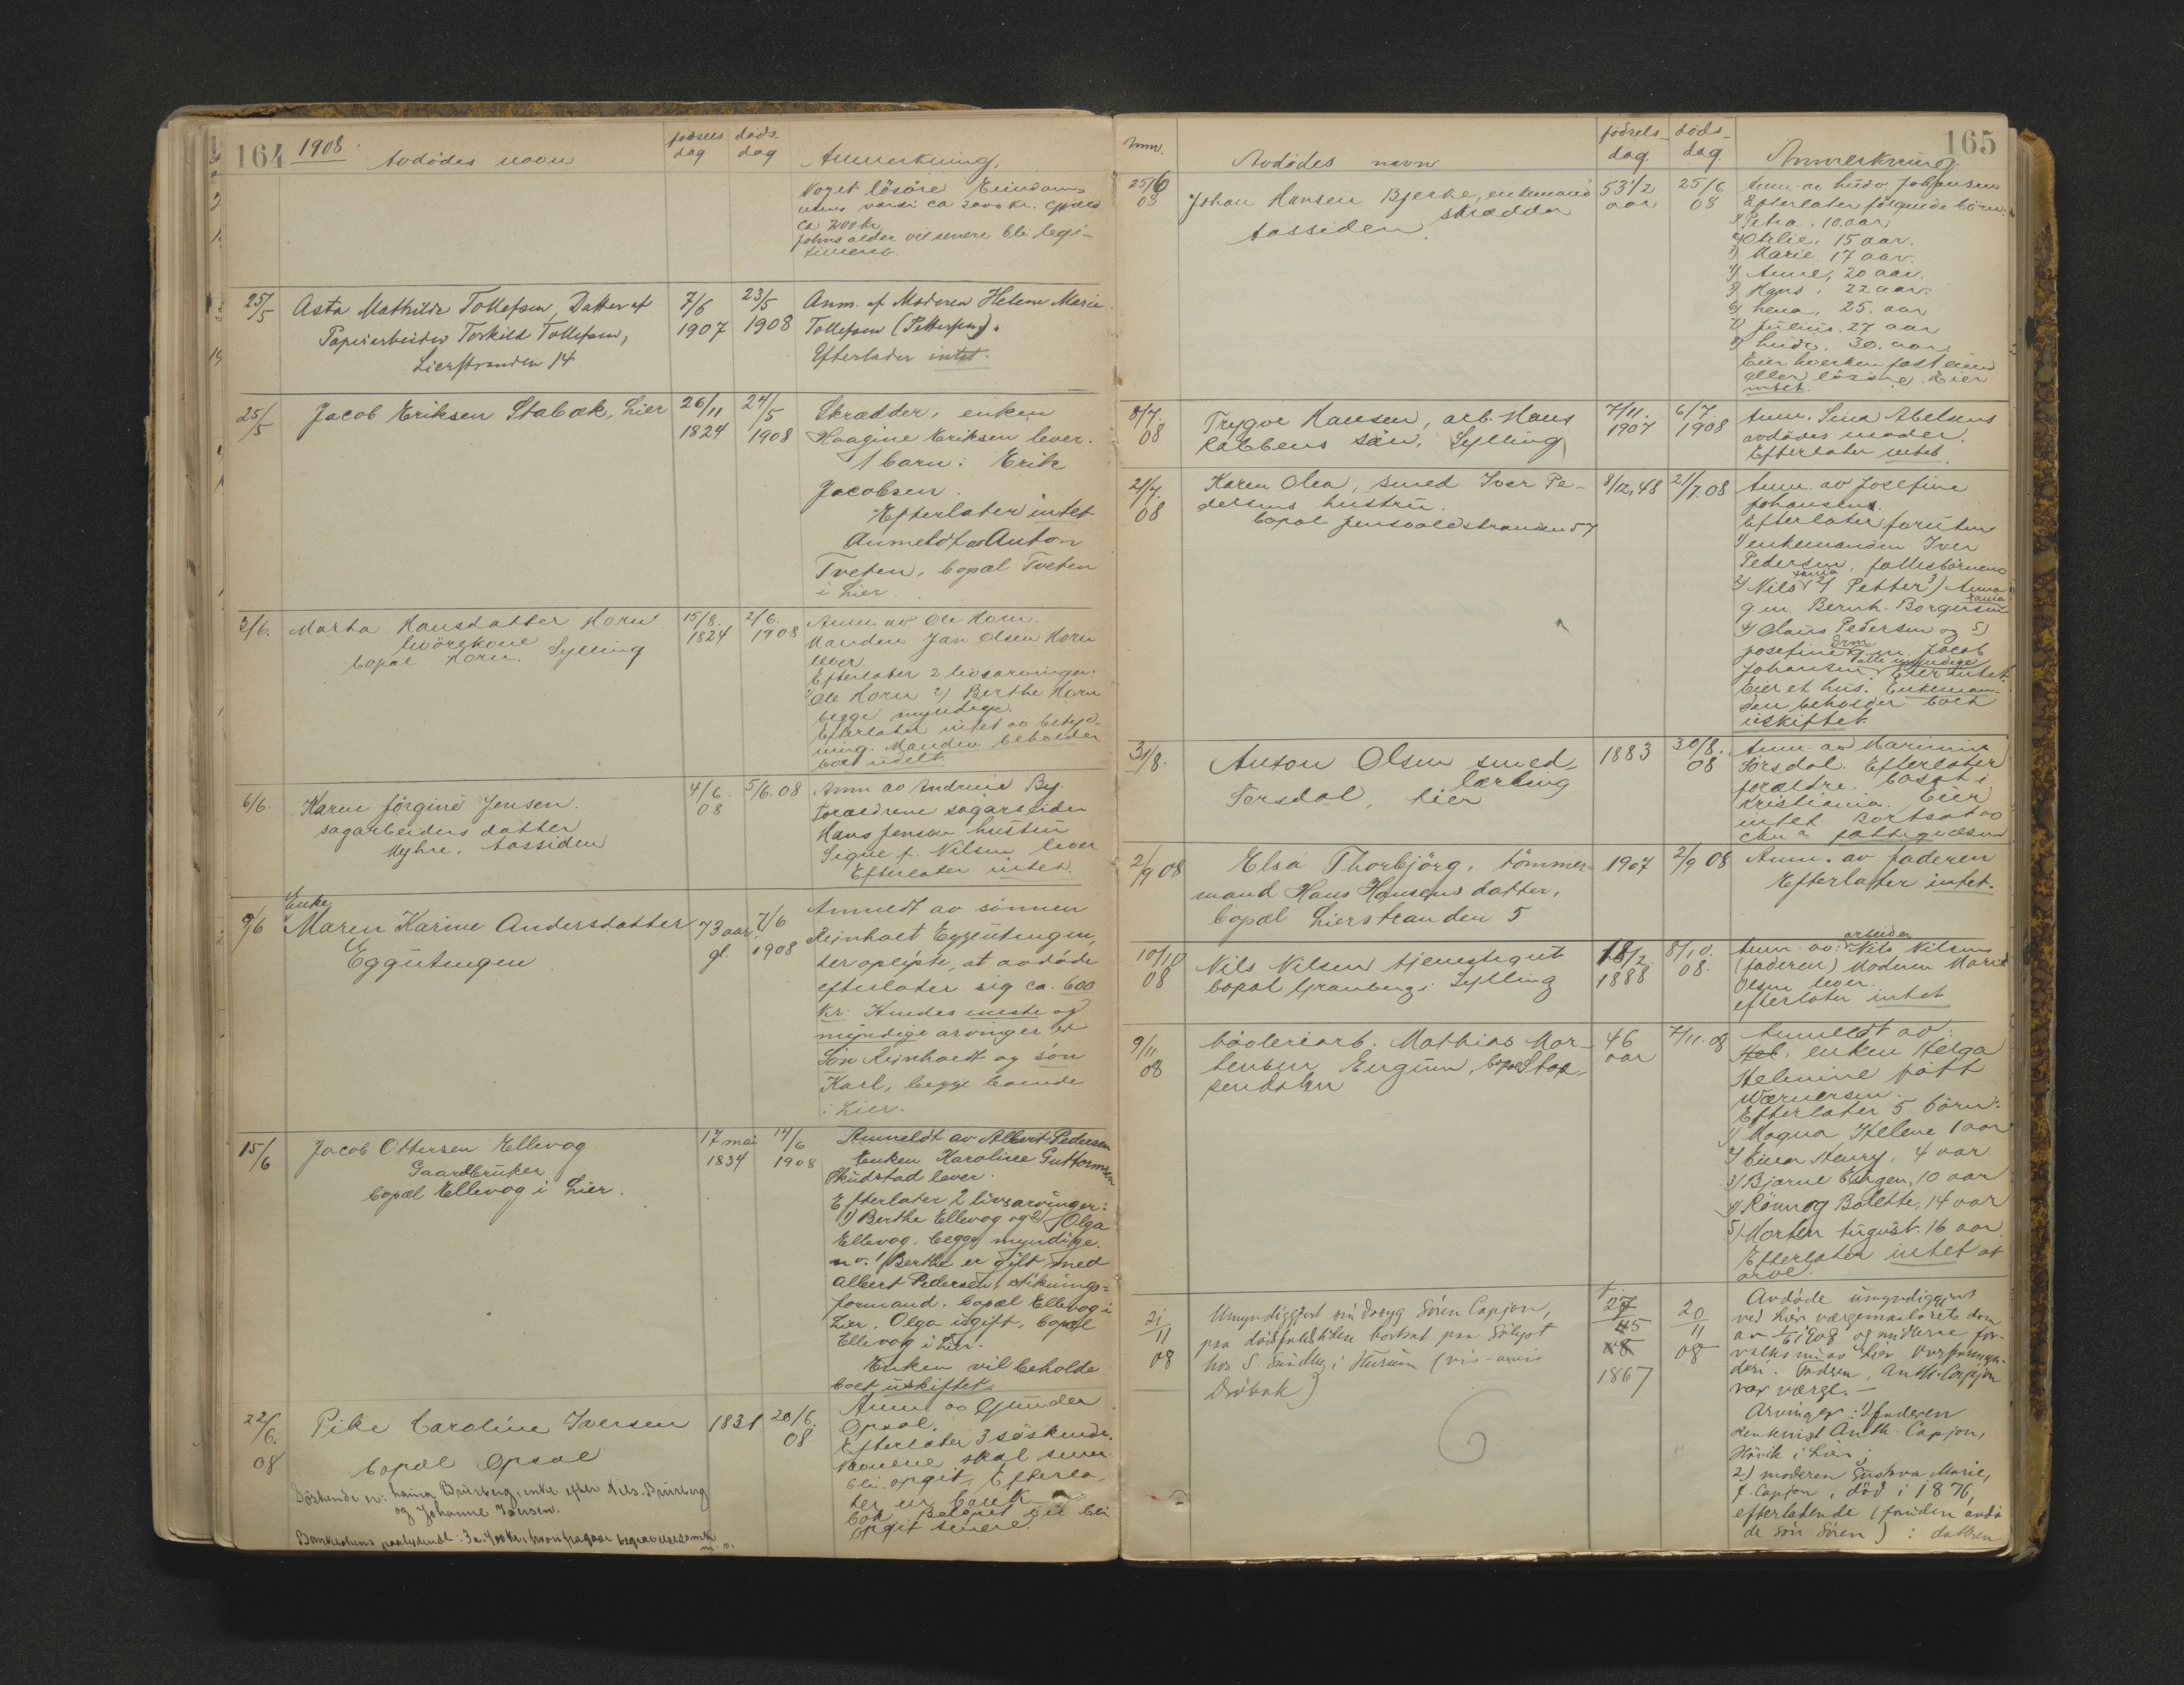 164
1908
Avdödes navn
födsels dag
döds dag
Anmerkning.
Noget lösöre Eiendom=
mens værdi ca 2000 kr. Gjæld
ca 200 kr.
Johns alder vil senere bli legi-
timeret.
25/5
Asta Mathilde Tollefsen, Datter af
Papirarbeider Torkild Tollefsen,
Lierstranden 14
7/6
1907
23/5
1908
Anm. af Moderen Helene Marie
Tollefsen (Pettersen).
Efterlader intet.
25/5
Jacob Eriksen Stabæk, Lier
26/11
1824
24/5
1908
Skrædder, enken
Haagine Eriksen lever.
1 barn: Erik
Jacobsen.
Efterlater intet.
Anmeldt av Anton
Tveten, bopæl Tveten
i Lier.
3/6.
Marta Hansdatter Horn
bopæl Horn. Sylling
15/8.
1824
2/6.
1908
Anm. av Ole Horn.
Manden Jan Olsen Horn
lever.
Efterlater 2 livsarvinger:
1) Ole Horn 2) Berthe Horn
begge myndige.
Efterlater intet av betyd-
ning. Manden beholder
boet udelt.
6/6.
Karen Jörgine Jensen.
sagarbeiders datter
Myhre. Tossiden
4/6.
08
5/6. 08
Anm av Andrine By.
Forældrene sagarbeider
Hans Jensen hustru
Signe f. Nilsen lever
Efterlater intet.
9/6
Enke
Maren Karine Andersdatter
Eggutengen
73 aar
gl.
7/6
1908
Anmeldt av sönnen
Reinholt Eggutengen,
der oplyste, at avdöde
efterlater sig ca. 600
kr. Hendes eneste og
myndige arvinger er
Sön Reinholdt og sön
Karl, begge boende
i Lier.
15/6
Jacob Ottersen Ellevog
Gaardbruker
bopæl Ellevog i Lier.
17 mai
1834
14/6
1908
Anmeldt av Albert Pedersen
Enken Karoline Guttormsen
Skudstad lever.
Efterlater 2 livsarvinger:
1) Berthe Ellevog og 2) Olga
Ellevog, begge myndige.
nr. 1 Berthe er gift med
Albert Pedersen, stiknings=
formand. bopæl Ellevog i
Lier. Olga ugift, bopæl
Ellevog i Lier.
Enken vil beholde
boet uskiftet.
22/6.
08
Pike Caroline Iversen
bopæl Opsal
Söskende er: Laura Brusberg, enke efter Nils Brusberg
og Johanne Iversen.
Bankbokens paalydende: 3 a 400 kr, hvori fragaar begravelsesomk.
m. v.
1831
20/6.
08
Anm av Gunder
Opsal.
Efterlater 3 söskende.
Navnene skal senere
bli opgit. Efterla-
ter en bank-
bok Belöpet vil bli
opgit senere.
165
Anm.
Avdödes navn
födsels-
dag.
döds-
dag.
Anmerkning.
25/6
08
Johan Hansen Bjerke, enkemand
skrædder
Tossiden.
53 1/2
aar
25/6
08
Anm. av Ludv. Johansen
Efterlater fölgende börn:
1) Petra. 10. aar
2) Otilie. 15 aar.
3) Marie. 17 aar.
4) Anne, 20 aar.
5) Hans, 22 aar.
6) Lena, 25. aar
7) Julius. 27 aar
8) Ludv. 30. aar.
Eier hverken fast eiend
eller lösöre. Eier
intet.
8/7.
08
Trygve Hansen, arb. Hans
Rabbens sön, Sylling
7/11.
1907
6/7.
1908
Anm. Lina Abelsens
avdödes moder.
Efterlater intet.
21/7.
08
Karen Olea, smed Iver Pe-
dersens hustru.
bopæl Jensvoldstranden 57
8/12, 48
21/7. 08
Anm. av Josefine
Johansens.
Efterlater foruten
1) enkemanden Iver
Pedersen, fællesbörnene
1) Nils 2) Petter 3) Anna
g.m. Bernh. Borgersen
4) Olaus Pedersen og 5)
Josefine g.m. Jacob
Johansen. alle myndige Eier intet.
Eier et hus. Enkeman-
den beholder boet
uskiftet.
31/8.
Anton Olsen smed
lærling
Sörsdal, Lier
1883
30/8.
08
Anm. av
Sörsdal. Efterlater
forældre, bosat i
Kristiania. Eier
intet. Bortsat av
Chra. fattigvæsen
2/9 08
Elsa Thorbjörg. tömmer-
mand Hans Hansens datter,
bopæl Lierstranden 5
1907
2/9 08
Anm. av faderen
Efterlater intet.
10/10
08
Nils Nilsen tjenestegut
bopæl Granberg i Sylling
18/2
1888
8/10.
08.
Anm. av: arbeider Nils Nilsens
(faderen) Moderen Marie
Olsen lever.
efterlater intet
9/11.
08
bövleriarb. Mathias Mor-
tensen Engum, bopæl Stop-
pendalen
46
aar
7/11. 08
Anmeldt av:
Hel. enken Helga
Helmine född
Wærnersen.
Efterlater 5 börn:
1) Magna Helene 1 aar
2) Einar Henry, 4 aar
3) Bjarne Eugen, 10 aar
4) Rönnog Bolette, 14 aar
5) Morten August. 16 aar.
Efterlater intet at
arve.
21/11
08
Umyndiggjort sindssyg Sören Capjon,
paa dödsfaldstiden bortsat paa Sölyst
hos S. Sundby i Hurum (vis-avis
Dröbak)
1867
20/11
08
Avdöde umyndiggjort
ved Lier værgemaalsrets dom
av 1/6 1908 og midlerne for-
valtes av Lier Overformyn-
deri. Faderen, Anth. Capjon
var værge.-
Arvinger: 1) faderen
Anth. Capjon,
Hövik i Lier;
2) moderen Gustava Marie,
f. Capjon, död i 1876,
efterlatende (foruden avdö
de sön Sören): datteren